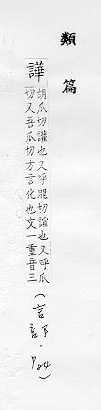 類篇
譁
胡瓜切讙也又呼瓜切諠也又呼瓜
切又吾瓜切方言化也文一重音三
（言部